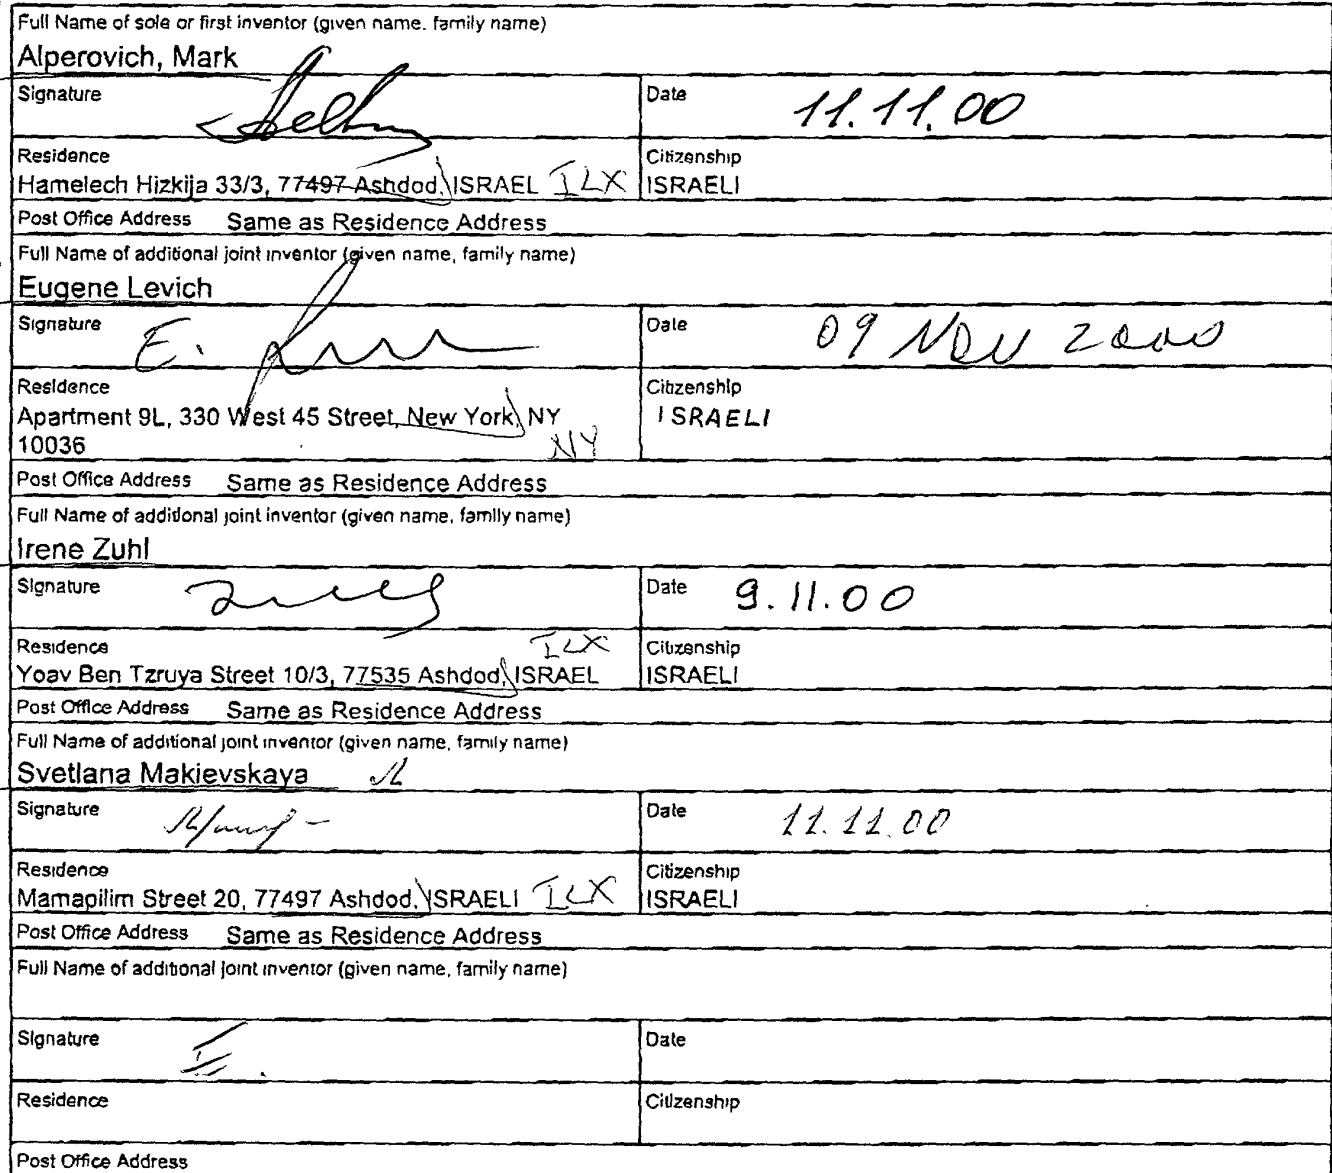 Full Name of sole or first inventor (given name, family name)
Alperovich, Mark
Signature Date 11.11.00
Residence Citizenship
Hamelech Hizkija 33/3, 77497 Ashdod, ISRAEL ILX ISRAELI
Post Office Address Same as Residence Address
Full Name of additional joint inventor (given name, family name)
Eugene Levich
Signature E. Date 09 NOV 2000
Residence Citizenship
Apartment 9L, 330 West 45 Street, New York, NY ISRAELI
10036 NY
Post Office Address Same as Residence Address
Full Name of additional joint inventor (given name, family name)
Irene Zuhl
Signature Date 9.11.00
ILX
Residence Citizenship
Yoav Ben Tzruya Street 10/3, 77535 Ashdod, ISRAEL ISRAELI
Post Office Address Same as Residence Address
Full Name of additional joint inventor (given name, family name)
Svetlana Makievskaya
Signature Date 11.11.00
Residence Citizenship
Mamapilim Street 20, 77497 Ashdod, ISRAELI ILX ISRAELI
Post Office Address Same as Residence Address
Full Name of additional joint inventor (given name, family name)
Signature Date
Residence Citizenship
Post Office Address